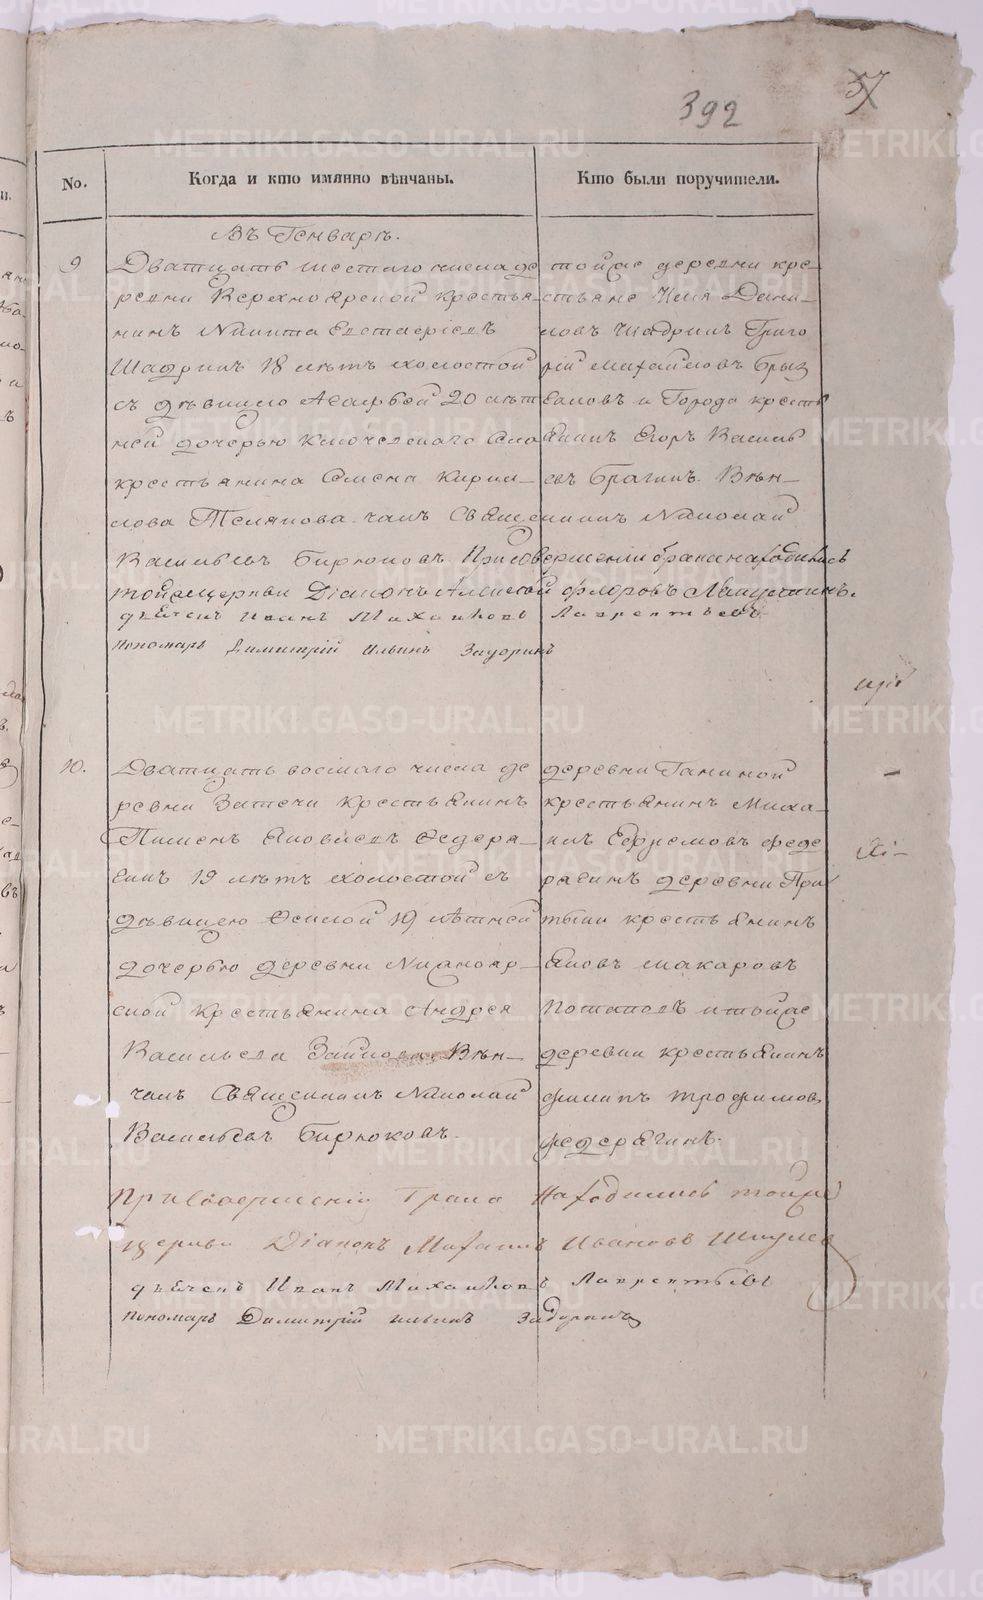 392
37
No.
Когда и кто имянно вѣнчаны.
Кто были поручители.
Въ Генварѣ.
9
Дватцать шестаго числа де
ревни Верхноярской крестья-
нинъ Никита Евстафіевъ
Шадринъ 18 лѣтъ холостой
съ дѣвицею 20 лѣт
ней дочерью Ключевскаго Села
крестьянина Семена Кирил-
лова Телякова. чалъ Священникъ Николай
Васильевъ Бирюковъ. При совершеніи брака находились
тойже церкви Діаконъ Алексей Флоровъ
дьячекъ Иванъ Михаиловъ Лаврентьевъ
пономарь Димитрій Ильинъ Задоринъ
тойже деревни кре-
стьяне Илія Дани-
ловъ Шадринъ Григо
рій Михайловъ Брыз
галовъ и Города кресть
янинъ Егоръ Василь
евъ Брагинъ. Вѣн-
10.
Дватцать восмаго числа де
ревни Затечи крестьянинъ
Пименъ Яковлевъ Федеря-
гинъ 19 лѣтъ холостой съ
дѣвицею 19 лѣтней
дочерью деревни Нижнояр-
ской крестьянина Андрея
Васильева Зайкова. Вѣн-
чалъ Священникъ Николай
Васильевъ Бирюковъ.
деревни Ганиной
крестьянинъ Миха-
илъ Ефремовъ Феде
рягинъ деревни При
тыки крестьянинъ
Яковъ Макаровъ
Потаповъ и тойже
деревни крестьянинъ
Филипъ Трофимовъ
Федерягинъ.
При Совершеніи Брака Находились тойже
церкви Діаконъ Михаилъ Ивановъ
дьячекъ Иванъ Михаиловъ Лаврентьевъ
пономарь Димитрій Ильинъ Задоринъ
METRIKI.GASO-URAL.RU